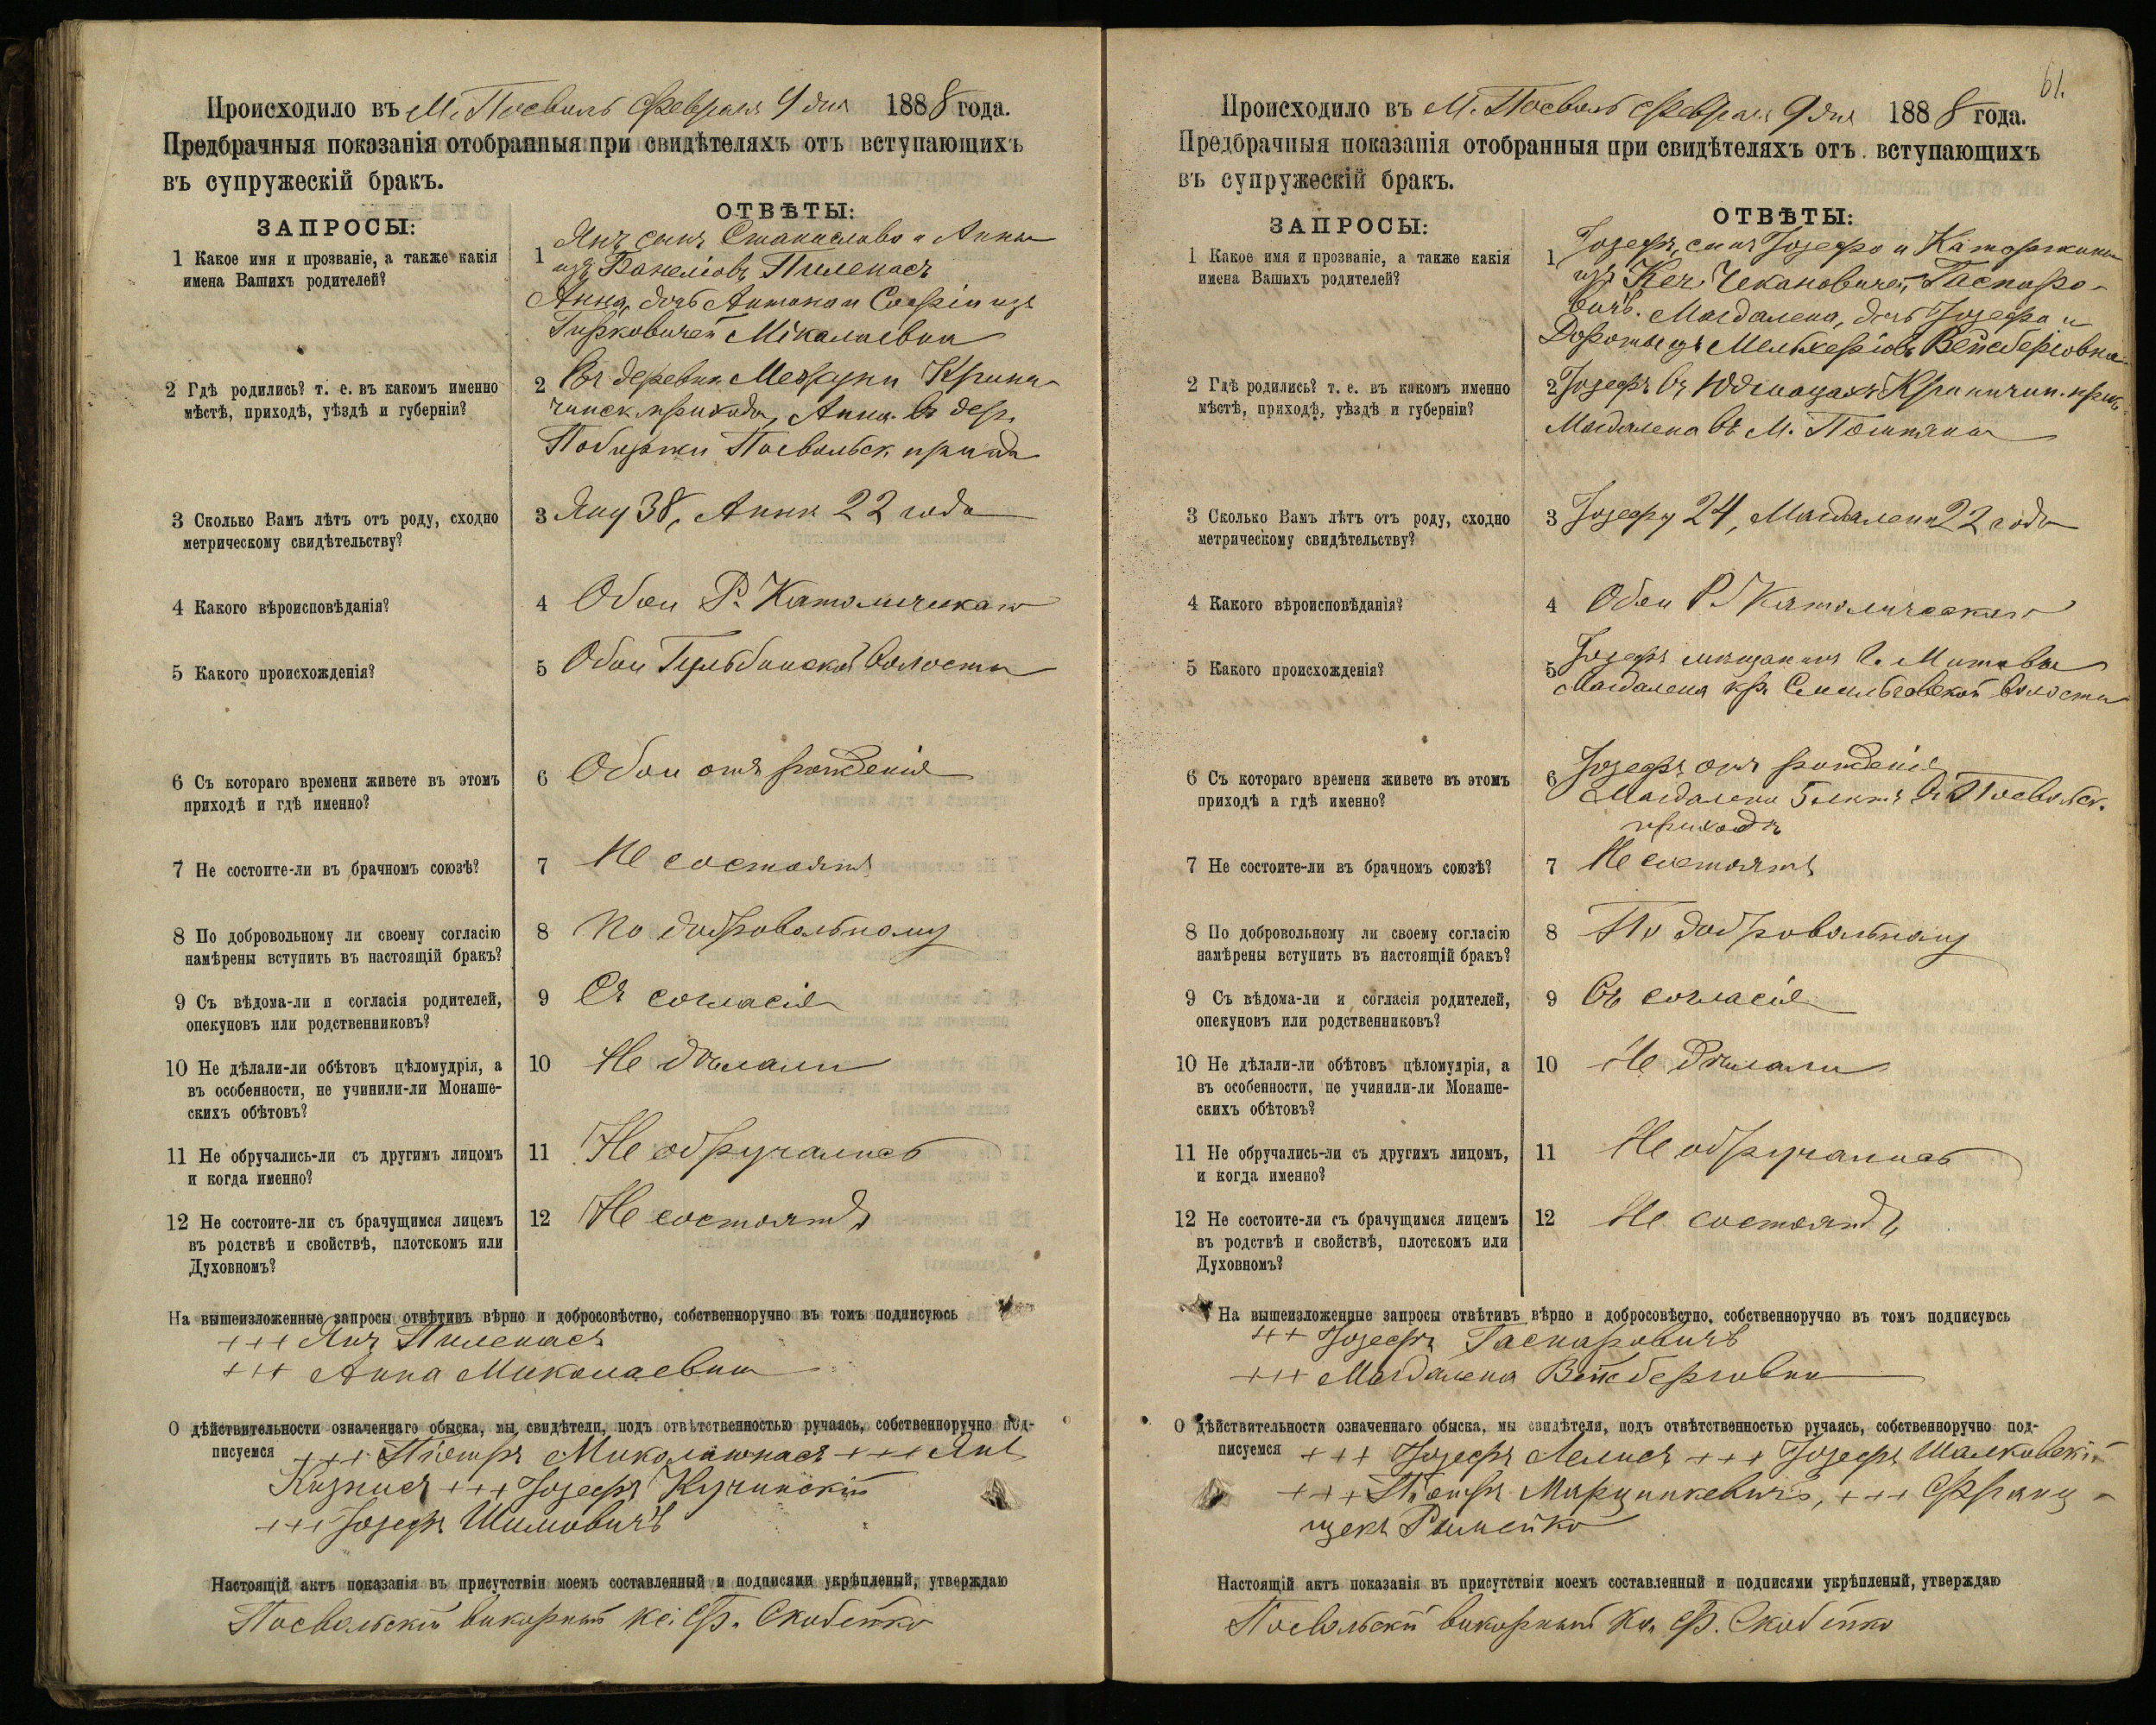 Происходило въ М. Посволь Февраля 9 дня 1888 года.
Предбрачныя показанія отобранныя при свидѣтеляхъ отъ вступающихъ
въ супружескій бракъ.
ЗАПРОСЫ:
ОТВѢТЫ:
1 Какое имя и прозваніе, а также какія
имена Вашихъ родителей?
1 Янъ сынъ Станислава и Анны
изъ Пиленасъ
Анна, дочь Антона и Софіи изъ
Гирковичей
2 Гдѣ родились? т. е. въ какомъ именно
мѣстѣ, приходѣ, уѣздѣ и губерніи?
2 Въ деревни Крини-
чинск. прихода, Анна въ дер.
Посвольск. прихода
3 Сколько Вамъ лѣтъ отъ роду, сходно
метрическому свидѣтельству?
3 Яну 38, Аннѣ 22 года
4 Какого вѣроисповѣданія?
4 Обои Р. Католическаго
5 Какого происхожденія?
5 Обои Гульбинской Волости
6 Съ котораго времени живете въ этомъ
приходѣ и гдѣ именно?
6 Обои отъ рожденія
7 Не состоите-ли въ брачномъ союзѣ?
7 Не состоятъ
8 По добровольному ли своему согласію
намѣрены вступить въ настоящій бракъ?
8 По добровольному
9 Съ вѣдома-ли и согласія родителей,
опекуновъ или родственниковъ?
9 Съ согласія
10 Не дѣлали-ли обѣтовъ цѣломудрія, а
въ особенности, не учинили-ли Монаше-
скихъ обѣтовъ?
10 Не дѣлали
11 Не обручались-ли съ другимъ лицомъ
и когда именно?
11 Не обручались
12 Не состоите-ли съ брачущимся лицемъ
въ родствѣ и свойствѣ, плотскомъ или
Духовномъ?
12 Не состоятъ
На вышеизложенные запросы отвѣтивъ вѣрно и добросовѣстно, собственноручно въ томъ подписуюсь
+++ Янъ Пиленасъ
+++ Анна Миколаевна
О дѣйствительности означеннаго обыска, мы свидѣтели, подъ отвѣтственностью ручаясь, собственноручно под-
писуемся +++ Піотръ +++ Янъ
+++ Іозефъ Кучинскій
+++ Іозефъ Шимовичъ
Настоящій актъ показанія въ присутствіи моемъ составленный и подписями укрѣпленый, утверждаю
Посвольскій викарный кс. Ф. Скобейко
61.
Происходило въ М. Посволь Февраля 9 дня 1888 года.
Предбрачныя показанія отобранныя при свидѣтеляхъ отъ вступающихъ
въ супружескій бракъ.
ЗАПРОСЫ:
ОТВѢТЫ:
1 Какое имя и прозваніе, а также какія
имена Вашихъ родителей?
1 Іозефъ, сынъ Іозефа и Катаржины
изъ Чекановичей, Гаспаро-
вичъ. Магдалена, дочь Іозефа и
Дороты изъ Мельхеріовъ Вейсберговна
2 Гдѣ родились? т. е. въ какомъ именно
мѣстѣ, приходѣ, уѣздѣ и губерніи?
2 Іозефъ въ Криничин. прих.
Магдалена въ М.
3 Сколько Вамъ лѣтъ отъ роду, сходно
метрическому свидѣтельству?
3 Іозефу 24, Магдалени 22 года
4 Какого вѣроисповѣданія?
4 Обои Р. Католическаго
5 Какого происхожденія?
5 Іозефъ мещанинъ г. Митавы
Магдалена кр. Смильговской волости
6 Съ котораго времени живете въ этомъ
приходѣ а гдѣ именно?
6 Іозефъ отъ рожденія
Магдалена 5 лѣтъ въ Посвольск.
приходѣ
7 Не состоите-ли въ брачномъ союзѣ?
7 Не состоятъ
8 По добровольному ли своему согласію
намѣрены вступить въ настоящій бракъ?
8 По добровольному
9 Съ вѣдома-ли и согласія родителей,
опекуновъ или родственниковъ?
9 Съ согласія
10 Не дѣлали-ли обѣтовъ цѣломудрія, а
въ особенности, не учинили-ли Монаше-
скихъ обѣтовъ?
10 Не дѣлали
11 Не обручались-ли съ другимъ лицомъ,
и когда именно?
11 Не обручались
12 Не состоите-ли съ брачущимся лицемъ
въ родствѣ и свойствѣ, плотскомъ или
Духовномъ?
12 Не состоятъ
На вышеизложенные запросы отвѣтивъ вѣрно и добросовѣстно, собственноручно въ томъ подписуюсь
+++ Іозефъ Гаспаровичъ
+++ Магдалена Вейсберговна
О дѣйствительности означеннаго обыска, мы свидѣтели, подъ отвѣтственностью ручаясь, собственноручно под-
писуемся +++ Іозефъ Лелисъ +++ Іозефъ Шалковскій
+++ Піотръ Марцинкевичъ, +++ Франц-
ишекъ Рымейко
Настоящій актъ показанія въ присутствія моемъ составленный и подписями укрѣпленый, утверждаю
Посвольскій викарный Кс. Ф. Скобейко